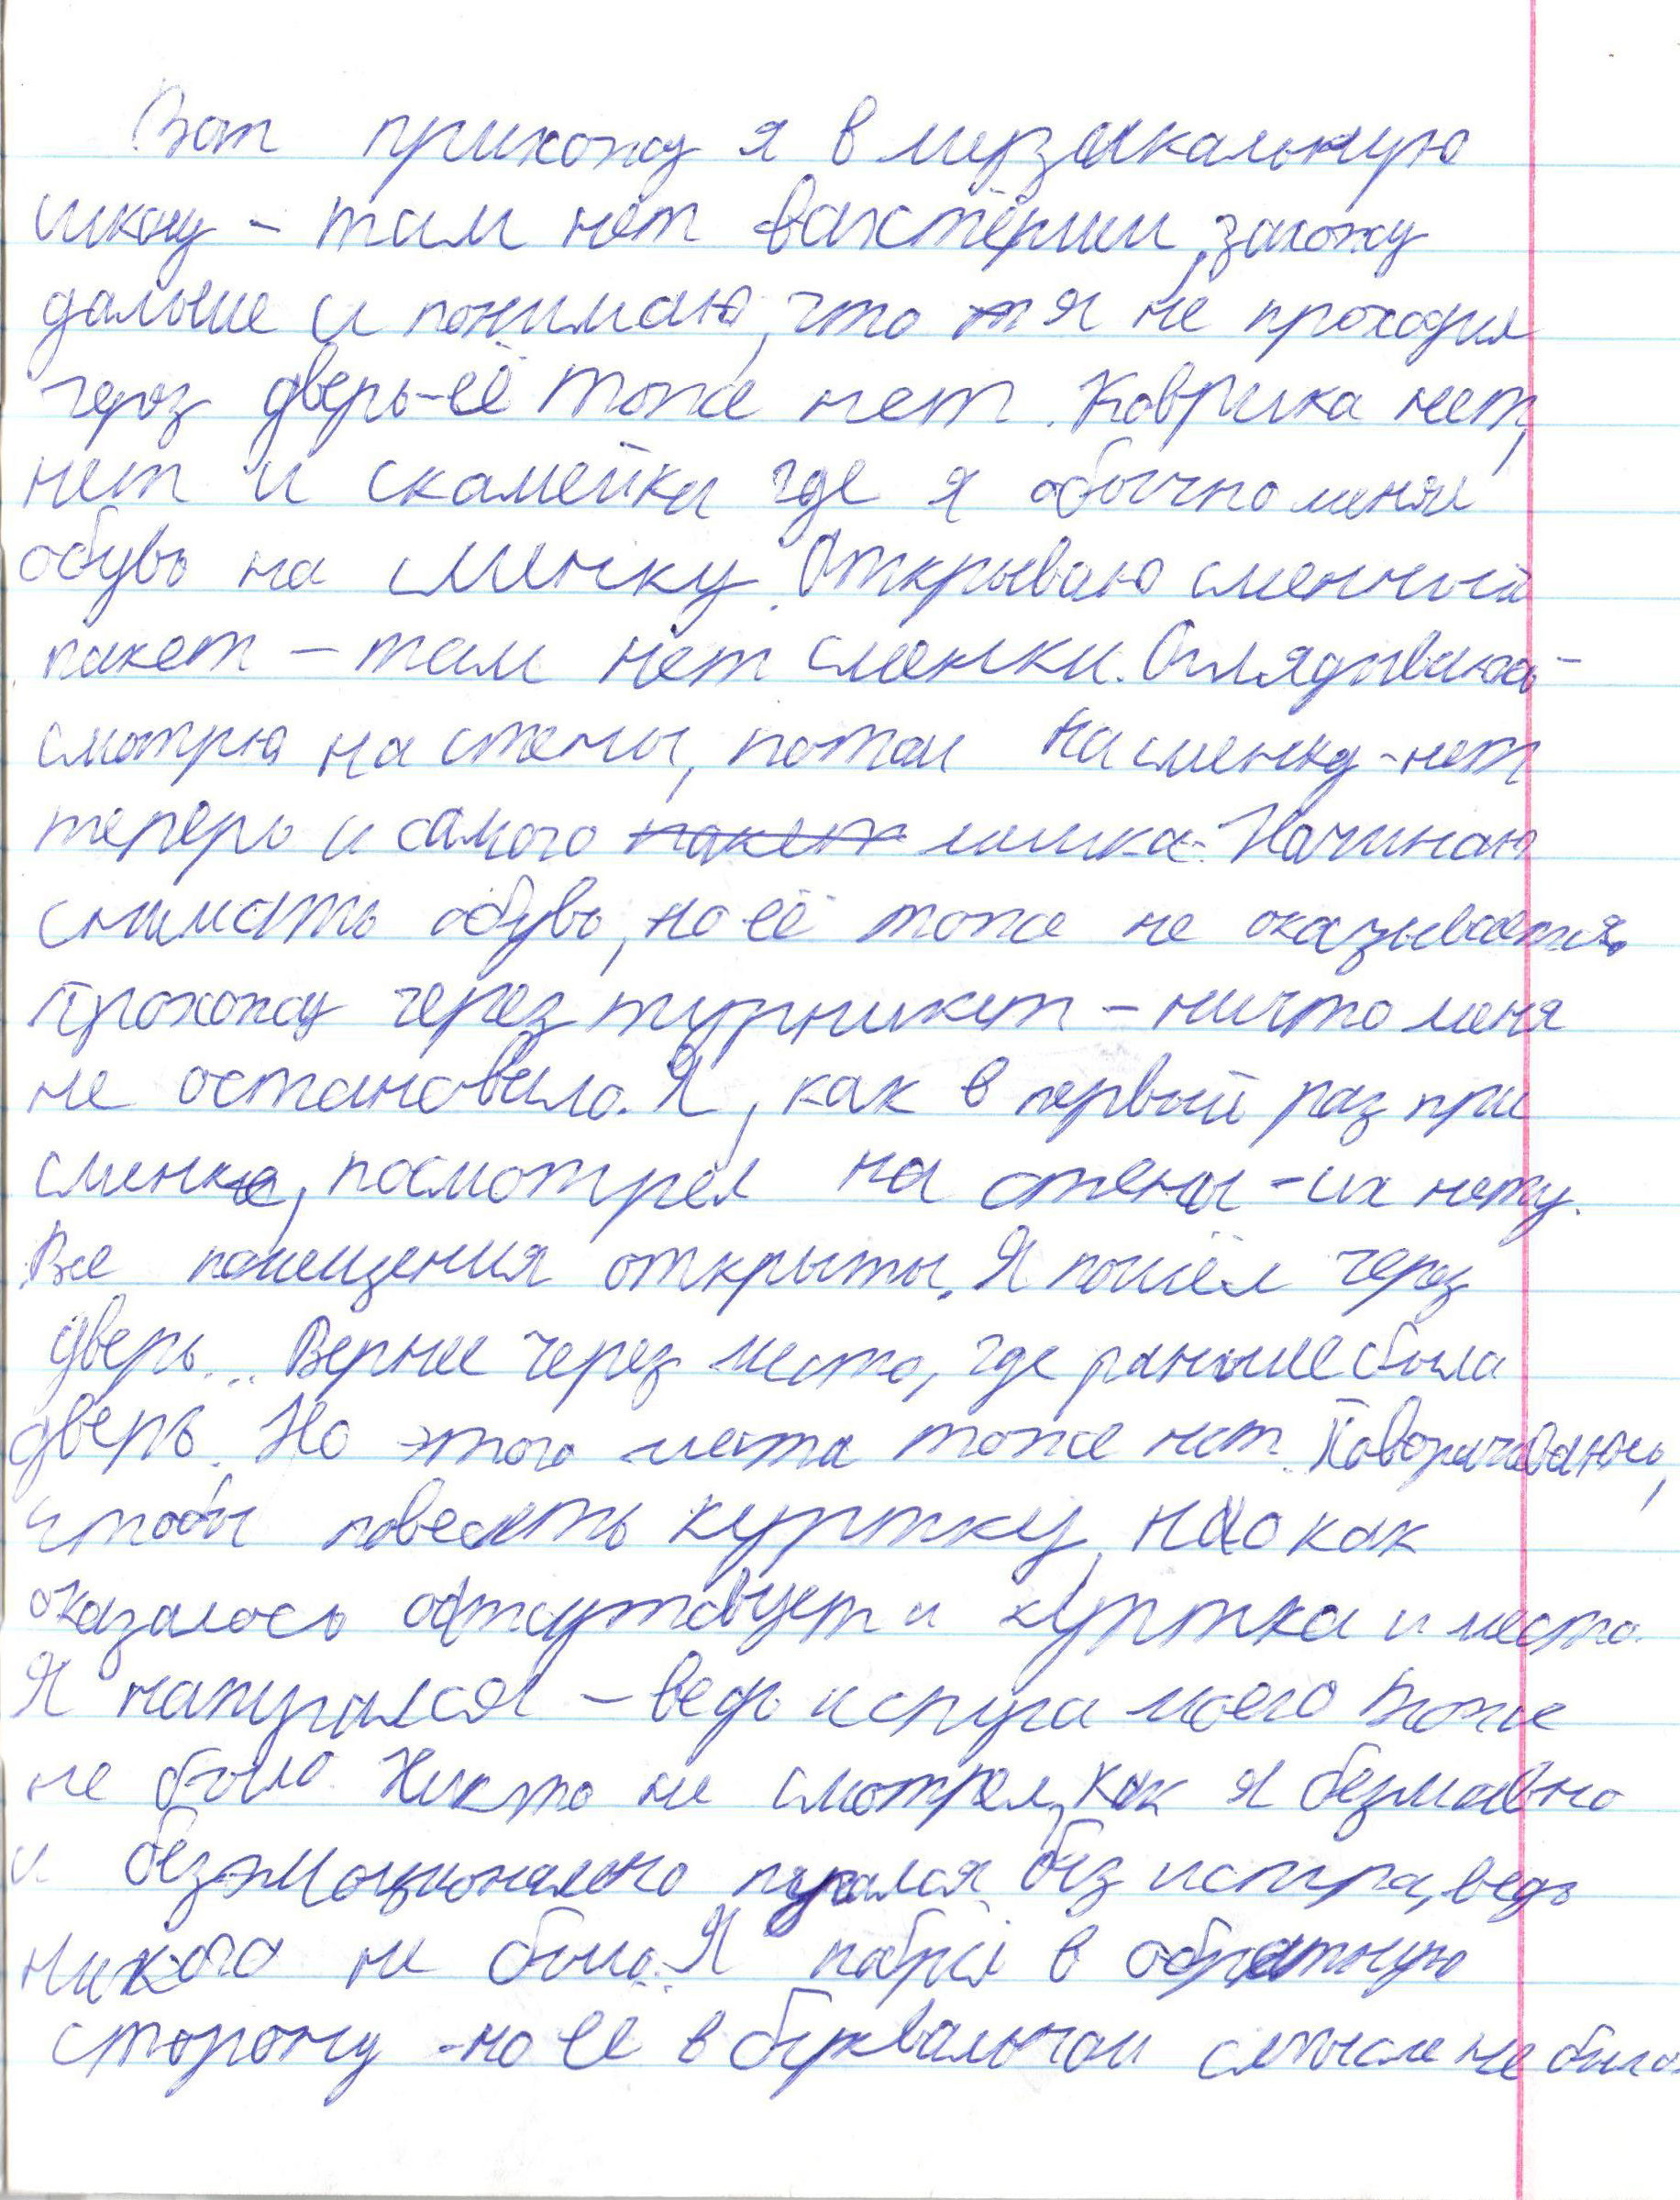 Вот прихожу я в музыкальную
школу – там нет вахтёрши, захожу
дальше и понимаю, что я не проходил
через дверь-её тоже нет. Коврика нет,
нет и скамейки где я обычно менял
обувь на сменку. Открываю сменный
пакет – там нет сменки. Оглядываюсь-
смотрю на стены, потом на сменку-нет
теперь и самого пакет мешка. Начинаю
снимать обувь, но её тоже не оказывается.
Прохожу через турникет – ничто меня
не остановило. Я, как в первый раз при
сменке, посмотрел на стены – их нету.
Все помещения открыты. Я пошёл через
дверь... Вернее через место, где раньше была
дверь. Но этого места тоже нет. Поворачиваюсь,
чтобы повесить куртку, но как
оказалось отсутствует и куртка и место.
Я напугался – ведь испуга моего тоже
не было. Никто не смотрел, как я безмолвно
и безэмоционально пугался без испуга, ведь
никого не было. Я побрёл в обратную
сторону -но её в буквальном смысле не было